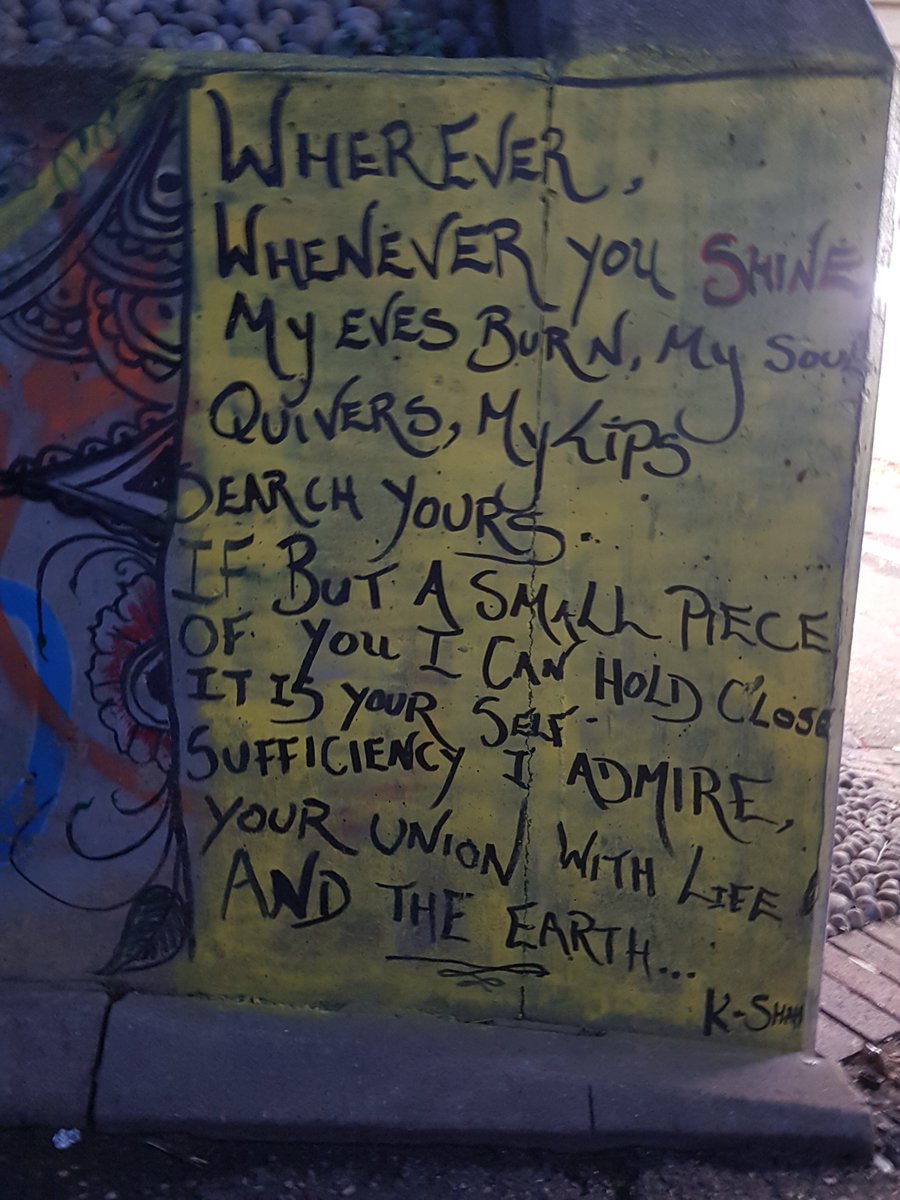 WHEREVER,
WHENEVER YOU SHINE
My EYES BURN, My SOUL
QUIVERS, My LiPS
SEARCH YOURS.
IF BUT A SMALL PIECE
OF YOU I CAN HOLD CLOSE
IT IS YOUR SELF-
SUFFICIENCY I ADMIRE,
YOUR UNION WITH LIFE
AND THE EARTH...
K-SHAH